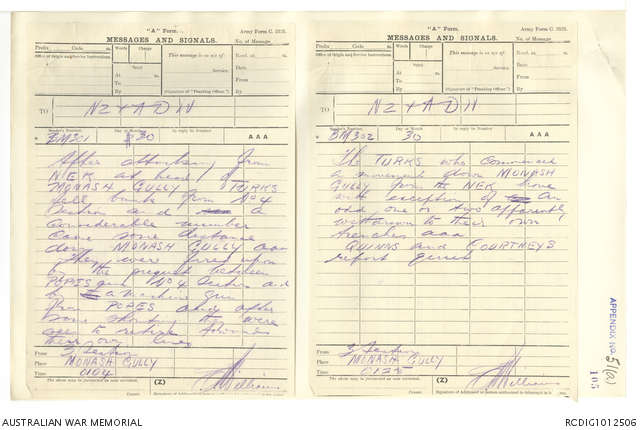 "A" Form. Army Form C. 2121.
MESSAGES AND SIGNALS. No. of Message
Prefix Code m. Words Charge
Office of Origin and Service Instructions. This message is on a/c of: Recd. at m.
Sent Date
At m. Service. From
To
By (Signature of "Franking Officer.") By
TO NZ & A DIV
Sender's Number Day of Month In reply to Number AAA
BM301 30
After attacking from
NEK at head of
MONASH GULLY TURKS
fell back from No 4
Section and a
considerable number
came some distance
down MONASH GULLY aaa
They were fired upon
by the between
POPES and No 4 Section and
by a machine gun
from POPES and after
some shooting were
seen to retire towards
their own lines
From 3 Section
Place MONASH GULLY
Time 0104
The above may be forwarded as now corrected. (Z)
Williams
"A" Form. Army Form C. 2121.
MESSAGES AND SIGNALS. No. of Message
Prefix Code m. Words Charge
Office of Origin and Service Instructions. This message is on a/c of: Recd. at m.
Sent Date
At m. Service. From
To
By (Signature of "Franking Officer.") By
TO NZ & A DIV
Sender's Number Day of Month In reply to Number AAA
BM302 30
The TURKS who commenced
a movement down MONASH
GULLY from the NEK have
with exception of an
odd one or two apparently
withdrawn to their own
trenches aaa
QUINNS and COURTNEYS
report quiet
From 3 Section
Place MONASH GULLY
Time 0125
The above may be forwarded as now corrected. (Z)
Williams
APPENDIX NO. 51(a)
105
AUSTRALIAN WAR MEMORIAL RCDIG1012506